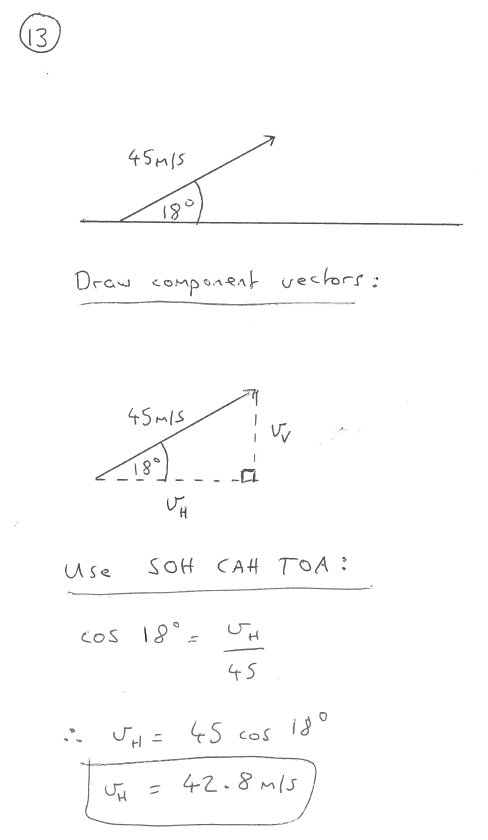 13
45m/s
18°
Draw component vectors:
45m/s
18°
vV
vH
Use SOH CAH TOA:
cos 18° = vH
45
∴ vH = 45 cos 18°
vH = 42.8 m/s